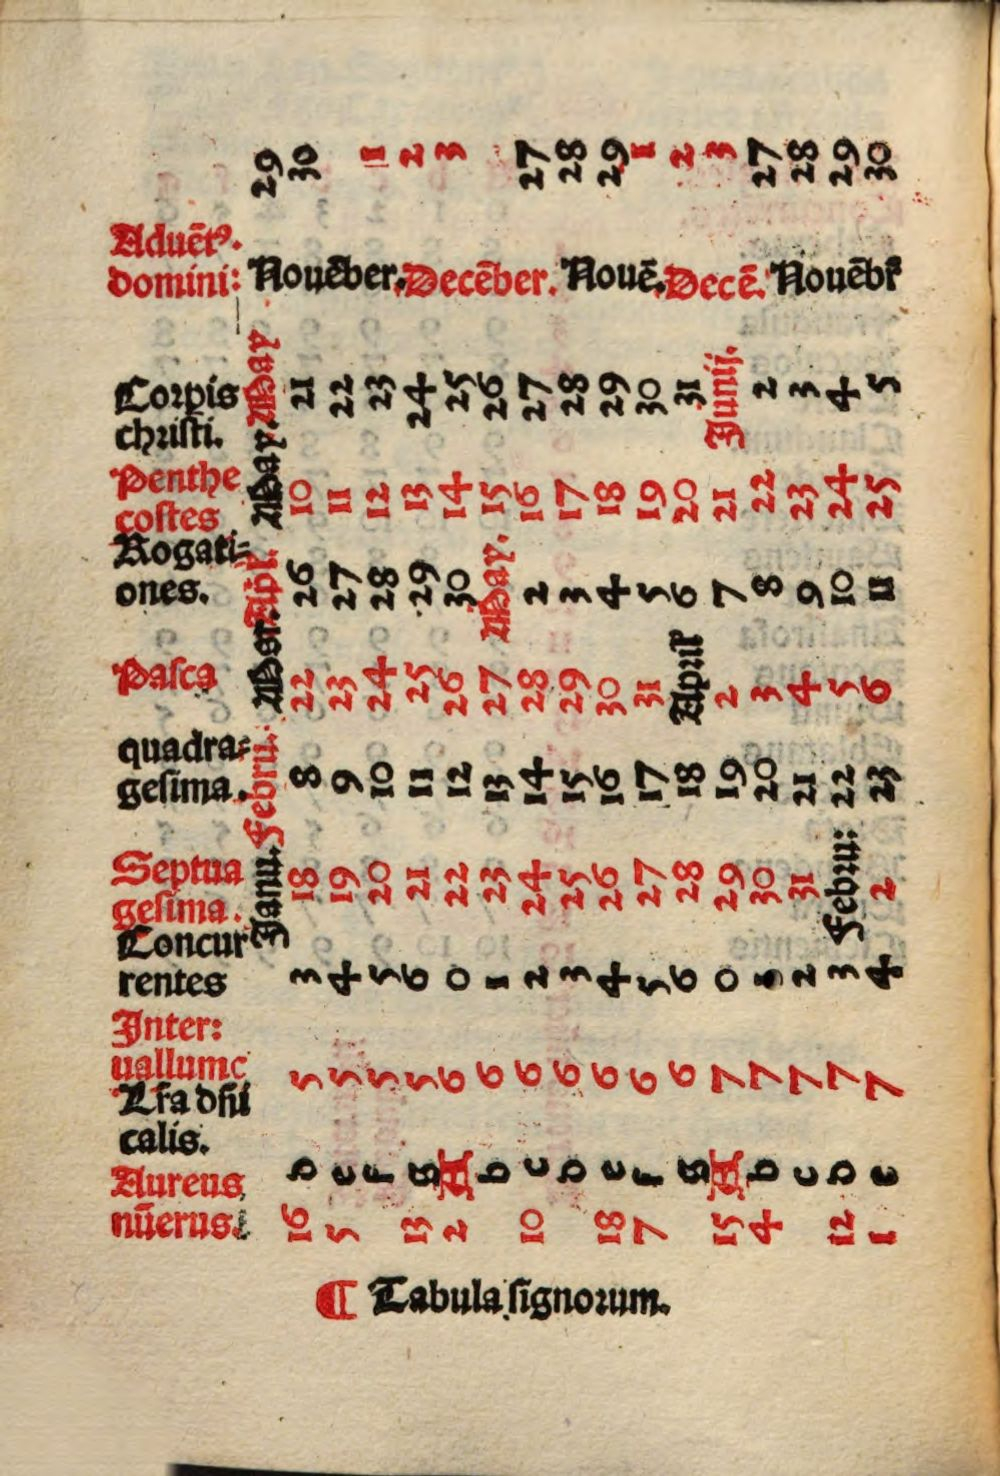 29 30 1 2 3 27 28 29 1 2 3 27 28 29 30
Aduēt⁹.
domini: Nouēber. Decēber. Nouē. Decē. Nouēbr
Corpis
christi. May 21 22 23 24 25 26 27 28 29 30 31 Junij. 2 3 4 5
Penthe
costes May. 10 11 12 13 14 15 16 17 18 19 20 21 22 23 24 25
Rogati=
ones. Apl. 26 27 28 29 30 May. 2 3 4 5 6 7 8 9 10 11
Pasca 22 23 24 25 26 27 28 29 30 31 April 2 3 4 5 6
quadra=
gesima. Febru. 8 9 10 11 12 13 14 15 16 17 18 19 20 21 22 23
Septua
gesima. Janu. 18 19 20 21 22 23 24 25 26 27 28 29 30 31 Febru: 2
Concur
rentes 3 4 5 6 0 1 2 3 4 5 6 0 1 2 3 4
Inter:
uallumc 5 5 5 5 6 6 6 6 6 6 6 7 7 7 7 7
Lr̄a dn̄i
calis. d e f g A b c d e f g A b c d e
Aureus
nūerus. 16 5 13 2 10 18 7 15 4 12 1
¶ Tabula signorum.